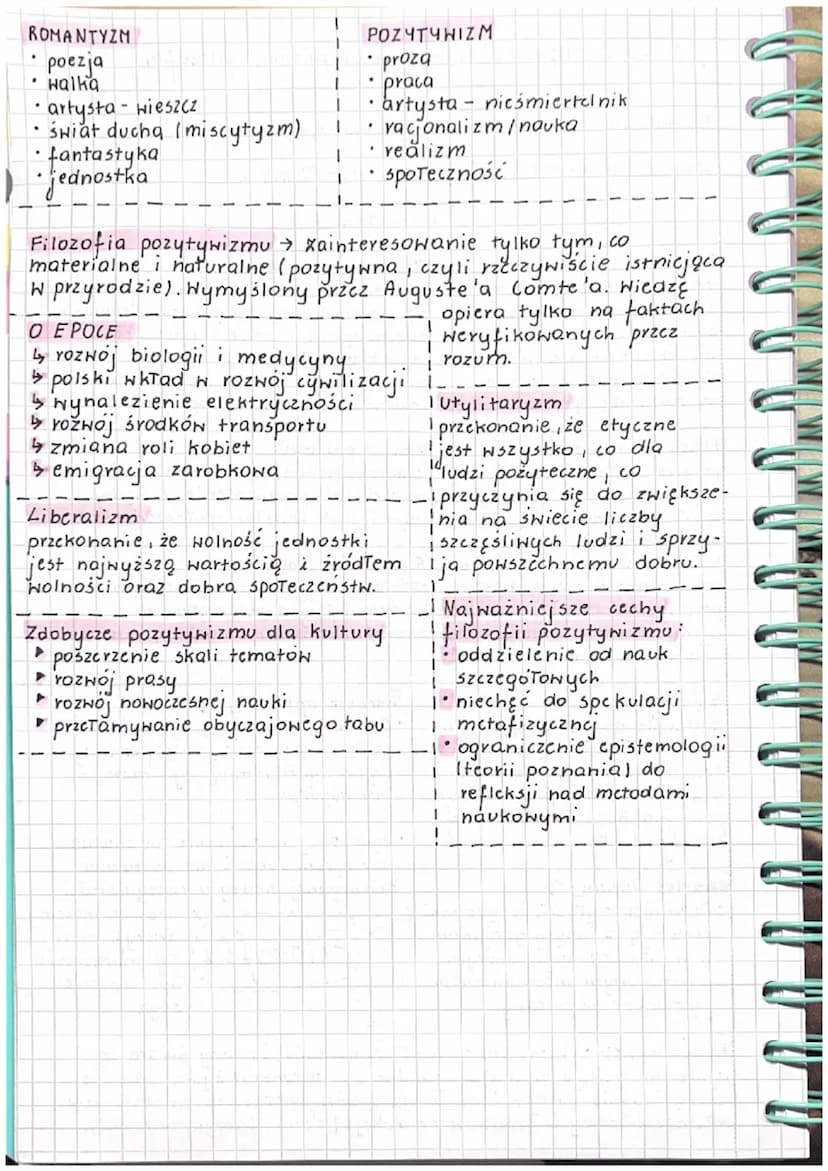 ROMANTYZM
• poezja
• walka
• artysta - wieszcz
• świat ducha (miscytyzm)
• fantastyka
• jednostka
POZYTYWIZM
• proza
• praca
• artysta - nieśmiertelnik
• racjonalizm/nauka
• realizm
• społeczność
Filozofia pozytywizmu → zainteresowanie tylko tym, co
materialne i naturalne (pozytywna, czyli rzeczywiście istniejąca
w przyrodzie). Wymyślony przez Auguste'a Comte'a. Wiedzę
opiera tylko na faktach
weryfikowanych przez
rozum.
O EPOCE
↳ rozwój biologii i medycyny
↳ polski wkład w rozwój cywilizacji
↳ wynalezienie elektryczności
↳ rozwój środków transportu
↳ zmiana roli kobiet
↳ emigracja zarobkowa
Liberalizm
przekonanie, że wolność jednostki
jest najwyższą wartością i źródłem
wolności oraz dobra społeczeństw.
Zdobycze pozytywizmu dla kultury
▶ poszerzenie skali tematów
▶ rozwój prasy
▶ rozwój nowoczesnej nauki
▶ przełamywanie obyczajowego tabu
Utylitaryzm
przekonanie, że etyczne
jest wszystko, co dla
ludzi pożyteczne, co
przyczynia się do zwiększe-
nia na świecie liczby
szczęśliwych ludzi i sprzy-
ja powszechnemu dobru.
Najważniejsze cechy
filozofii pozytywizmu:
• oddzielenie od nauk
szczegółowych
• niechęć do spekulacji
metafizycznej
• ograniczenie epistemologii
(teorii poznania) do
refleksji nad metodami
naukowymi